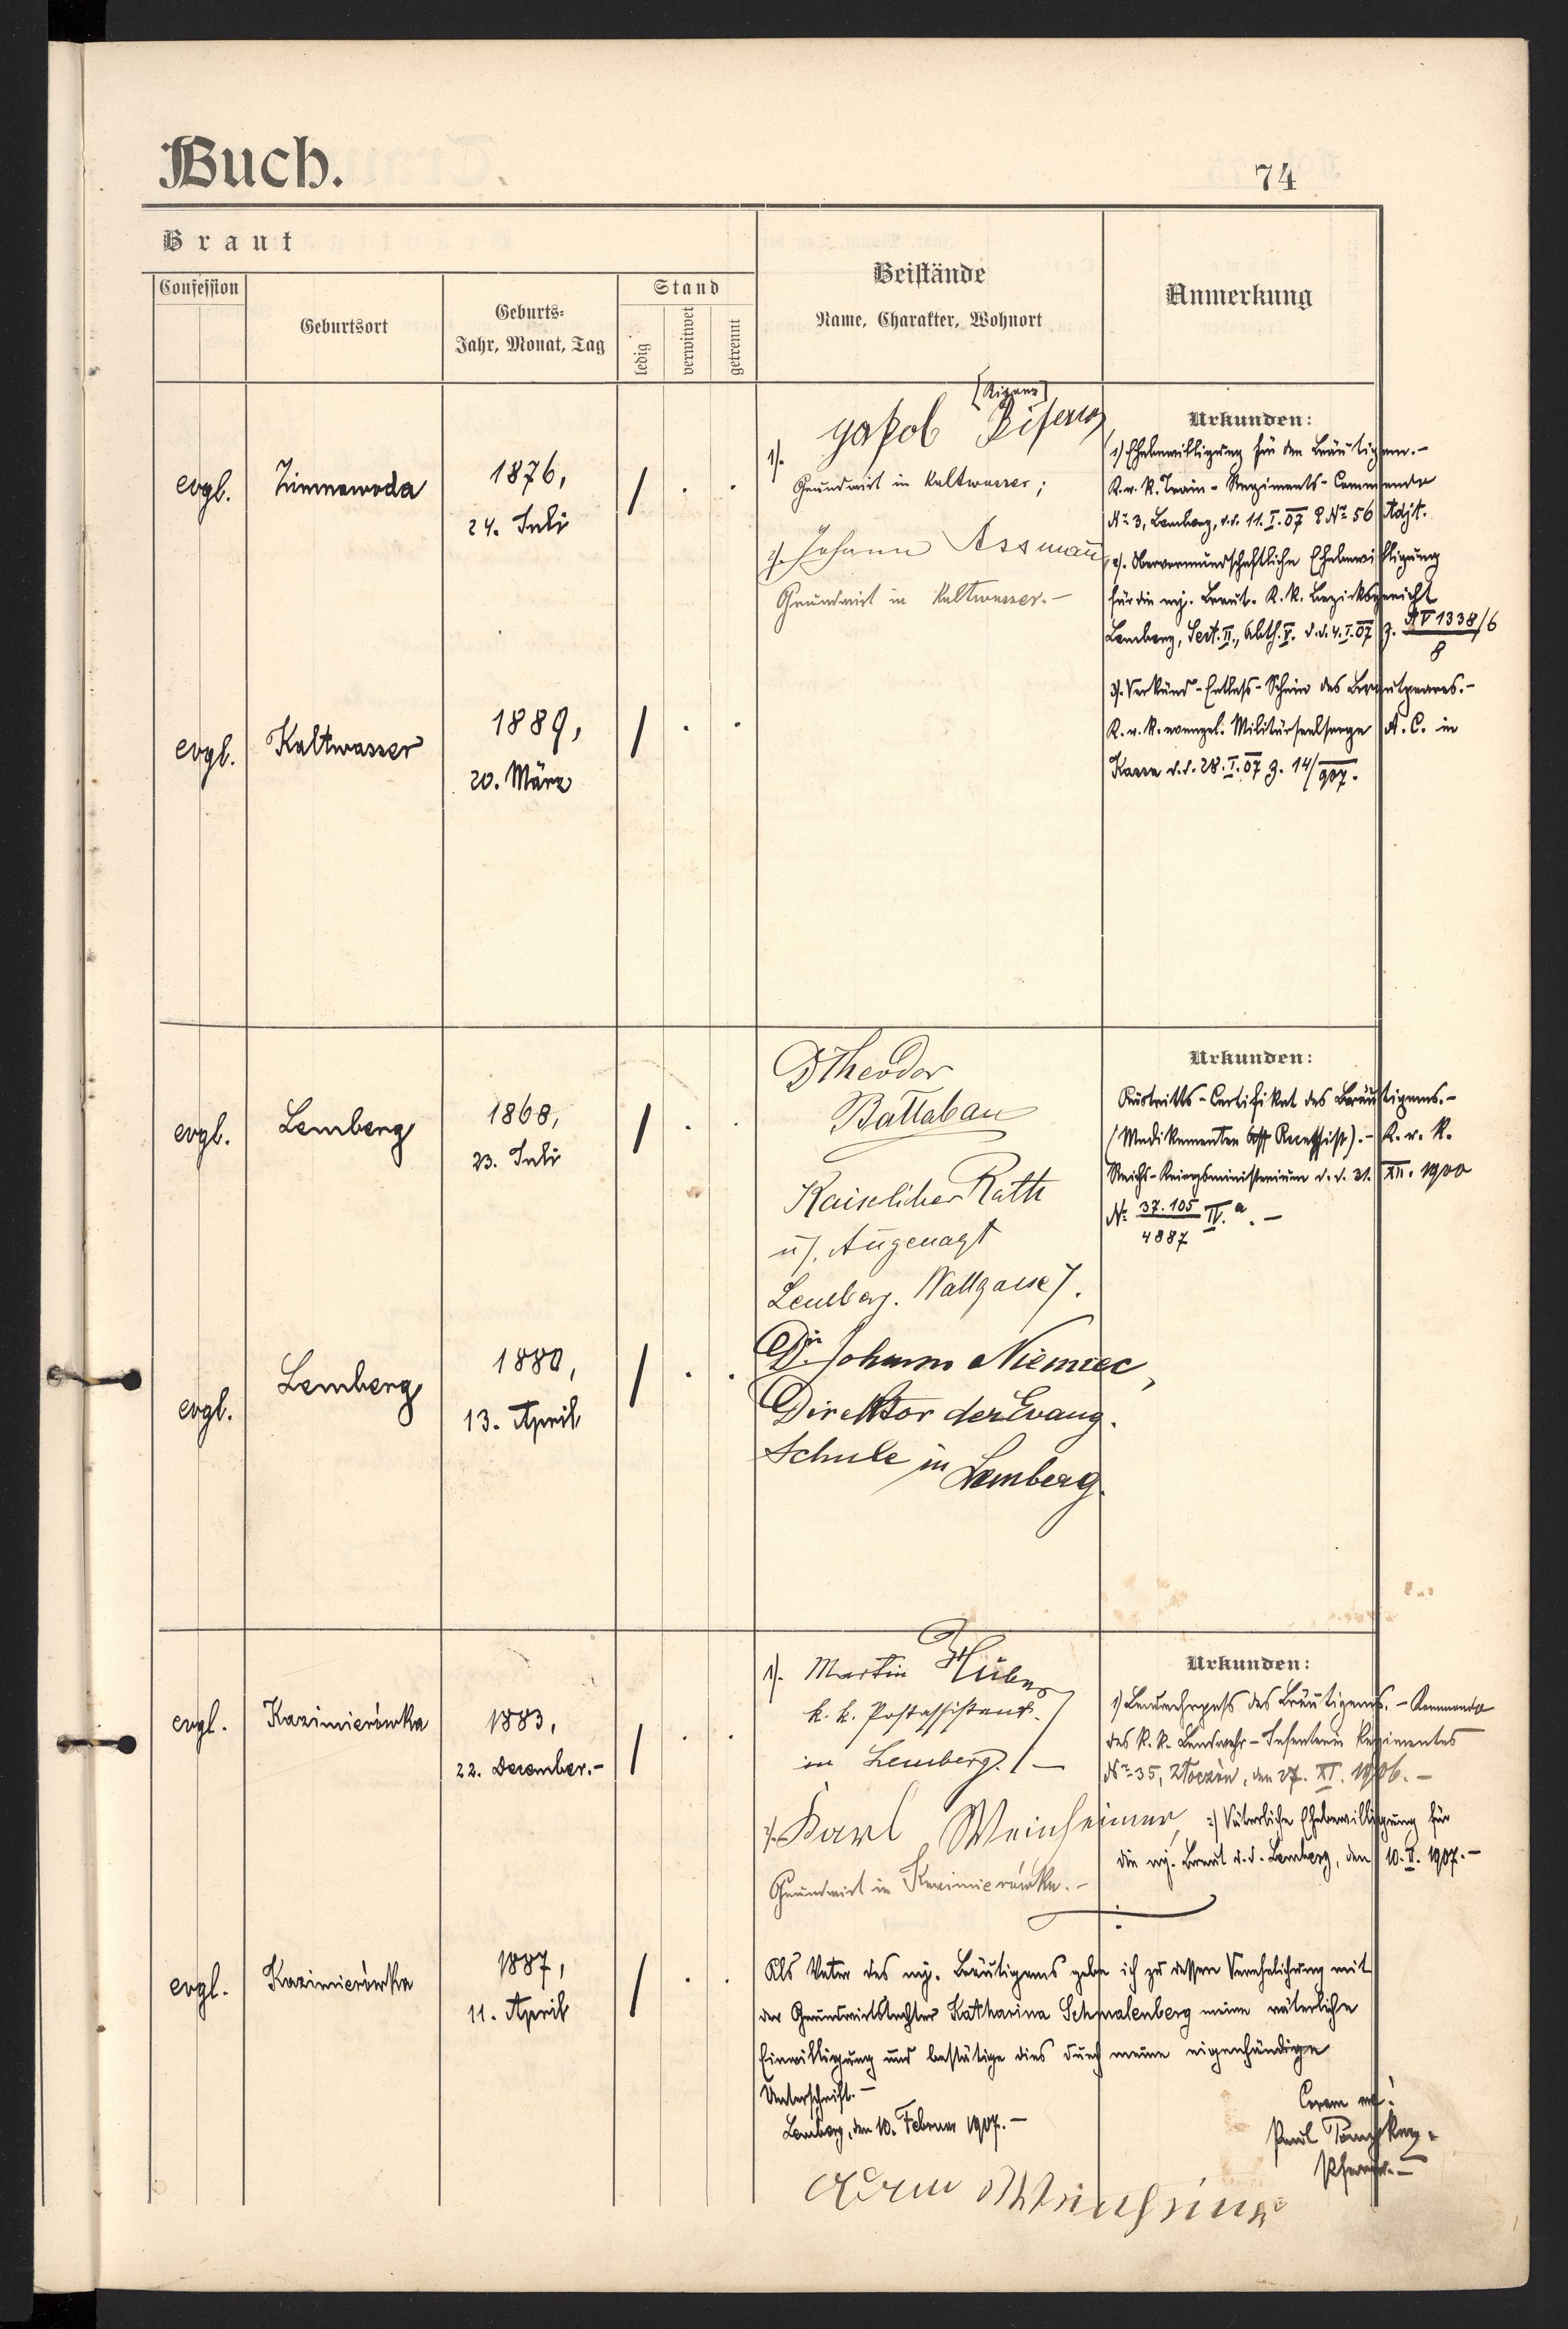 Buch.
74
Braut
Beistände
Name, Charakter, Wohnort
Anmerkung
Confession
Geburtsort
Geburts-
Jahr, Monat, Tag
Stand
ledig
verwitwet
getrennt
evgl.
Zimnawoda
1876,
24. Juli
1).
Jakob
Grundwirt in Kaltwasser;
2). Johann Assmann
Grundwirt in Kaltwasser.-
Urkunden:
1) Ehebewilligung für den Bräutigam.-
K.u.K. Train-Regiments-Commando
No 3, Lemberg, d.d. 11.I.07 E No 56 Adjt.
2). Obervormundschaftliche Ehebewilligung
für die mj. Braut. K.K. Bezirksgericht
Lemberg, Sect. II., Abth. V. d.d. 4.I.07 Z. A V 1338/6
8
3). Verkünd-Entlass-Schein des Brautpaares.-
K.u.K. evangel. Militärseelsorge A.C. in
d.d. 28.I.07 Z. 14/907.
evgl.
Kaltwasser
1889,
20. März
evgl.
Lemberg
1868,
23. Juli
Dr Theodor
Ballaban
Kaiserlicher Rath
u. Augenarzt
Lemberg. Wallgasse 7.
Urkunden:
Austritts-Certifikat des Bräutigams.-
(Medikamenten Accessist).- K.u.K.
Reichs-Kriegsministerium d.d. 31. XII. 1900
No 37.105
4887 IV. a.-
evgl.
Lemberg
1880,
13. April
Dr. Johann Niemiec,
Direktor der Evang.
Schule in Lemberg.
evgl.
Kazimierówka
1883,
22. Dezember.-
1). Martin Huber
k.k. Postassistent
in Lemberg. -
2). Karl Weinheimer
Grundwirt in Kazimierówka.-
Urkunden:
1) Landwehrpass des Bräutigams.- Kommando
des K.K. Landwehr-Infanterie Regimentes
No 35, Złoczów, den 27. XI. 1906.-
2) Väterliche Ehebewilligung für
die mj. Braut d.d. Lemberg, den 10. II. 1907.-
evgl.
Kazimierówka
1887,
11. April
Als Vater des mj. Bräutigams gebe ich zu dessen Verehelichung mit
der Grundwirtstochter Katharina Schmalenberg meine väterliche
Einwilligung und bestätige dies durch meine eigenhändige
Unterschrift.-
Lemberg, den 10. Februar 1907.-
Coram me:
Paul
Pfarrer.-
Adam Weinheimer